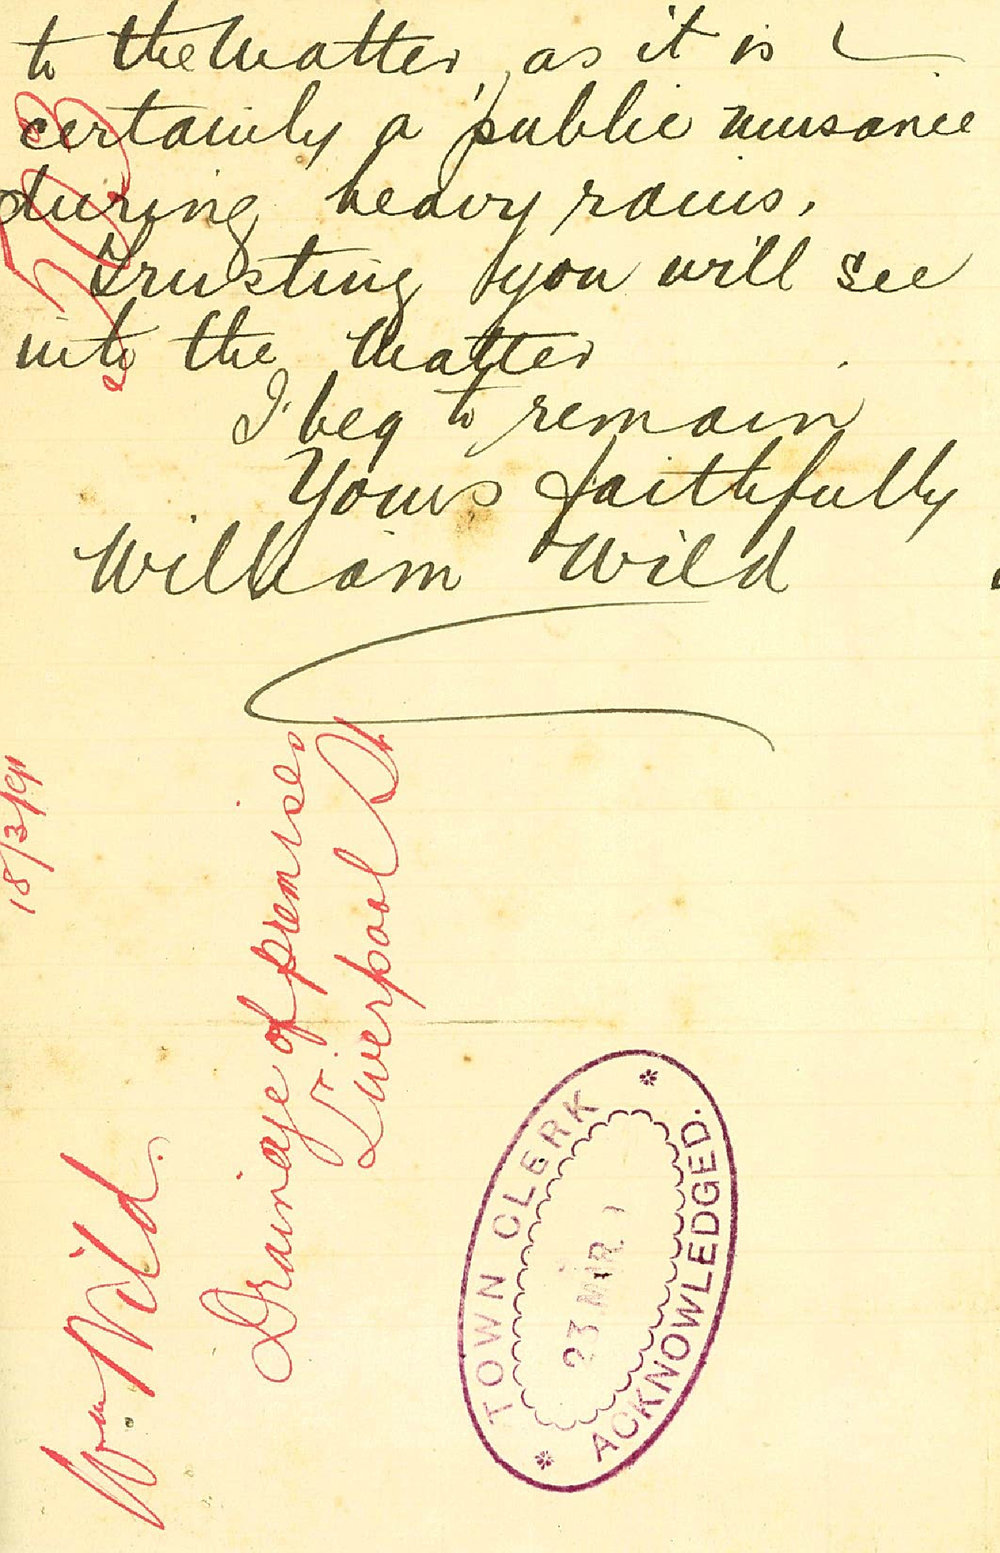 to the matter, as it is
certainly a public nuisance
during heavy rains.
Trusting you will see
into the matter
I beg to remain
Yours faithfully
William Wild
18/3/91
Wm Wild.
Drainage of premises
Liverpool St
TOWN CLERK
23 MAR
ACKNOWLEDGED.